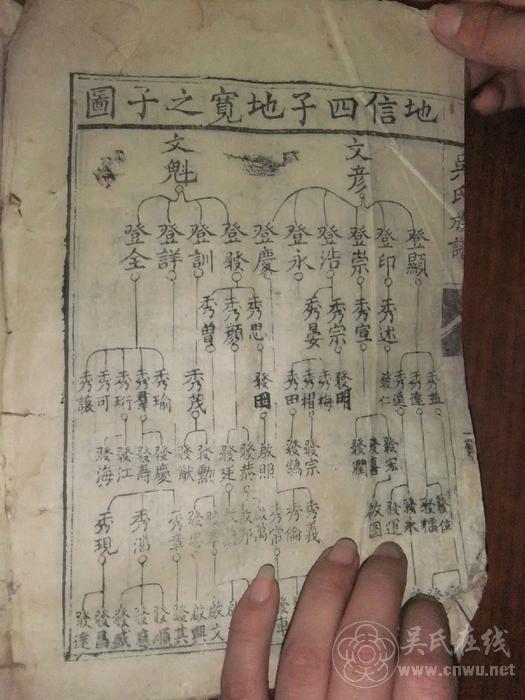 地信四子地寬之子圖
吳氏族譜
文彦 文魁
登顯 登印 登崇 登浩 登永 登慶 登發 登訓 登詳 登全
秀述 秀宣 秀宗 秀晏 秀思 秀顏 秀曾
秀益 秀達 秀進 發仁 發明 秀梅 秀楷 秀田 發國 秀茂 秀瑜 秀羣 秀珩 秀可 秀讓
發宏 發喜 發潤 發宗 發鵠 啟照 發恭 發廷 發勳 發猷 發慶 發壽 發江 發海
發位 發穤 發永 發運 啟國 秀義 秀倫 秀常 啟萬 發忠 秀章 秀滔 秀現
啟文 啟興 發其 發順 發盛 發昌 發達
吴氏在线
www.cnwu.net